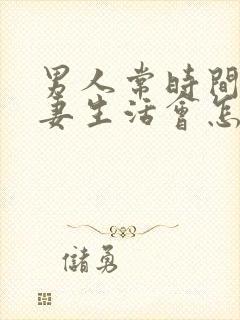 男人常時間
妻生活會怎
儲勇